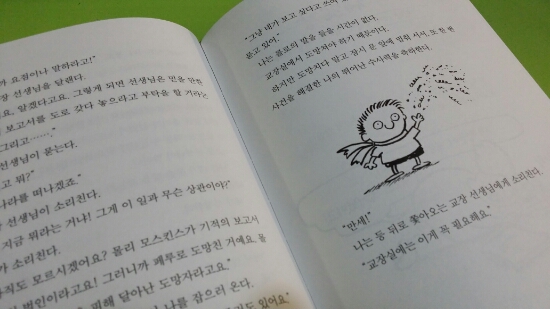 요점이나 말하라고!"
장 선생님을 달랜다.
요, 알겠다고요. 그렇게 되면 선생님은
보고서를 도로 갖다 놓으라고 부탁을 할 거라는
그리고……."
선생님이 묻는다.
고 뭐?"
나라를 떠나겠죠."
장 선생님이 소리친다.
지금 뭐라는 거냐! 그게 이 일과 무슨 상관이야?"
가 소리친다.
아직도 모르시겠어요? 몰리 모스킨스가 기적의 보고서
범인이라고요! 그러니까 페루로 도망친 거예요. 몰
피해 달아난 도망자라고요"
나를 잡으러 온다.
도 있어요"
"그냥 내가 보고 싶다고 쓰여
묻고 있어."
나는 플로의 말을 들을 시간이 없다.
교장실에서 도망쳐야 하기 때문이다.
하지만 도망치다 말고 잠시 문 앞에 멈춰 서서, 또 한 번
사건을 해결한 나의 뛰어난 수사력을 축하한다.
"만세!"
나는 등 뒤로 쫓아오는 교장 선생님에게 소리친다.
"교장실에는 이게 꼭 필요해요"